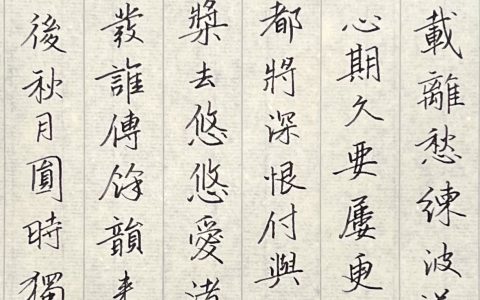 載離愁練波
心期久要屢更
都將深恨付與
槳去悠悠愛渚
發誰傳餘韻來
後秋月圓時獨